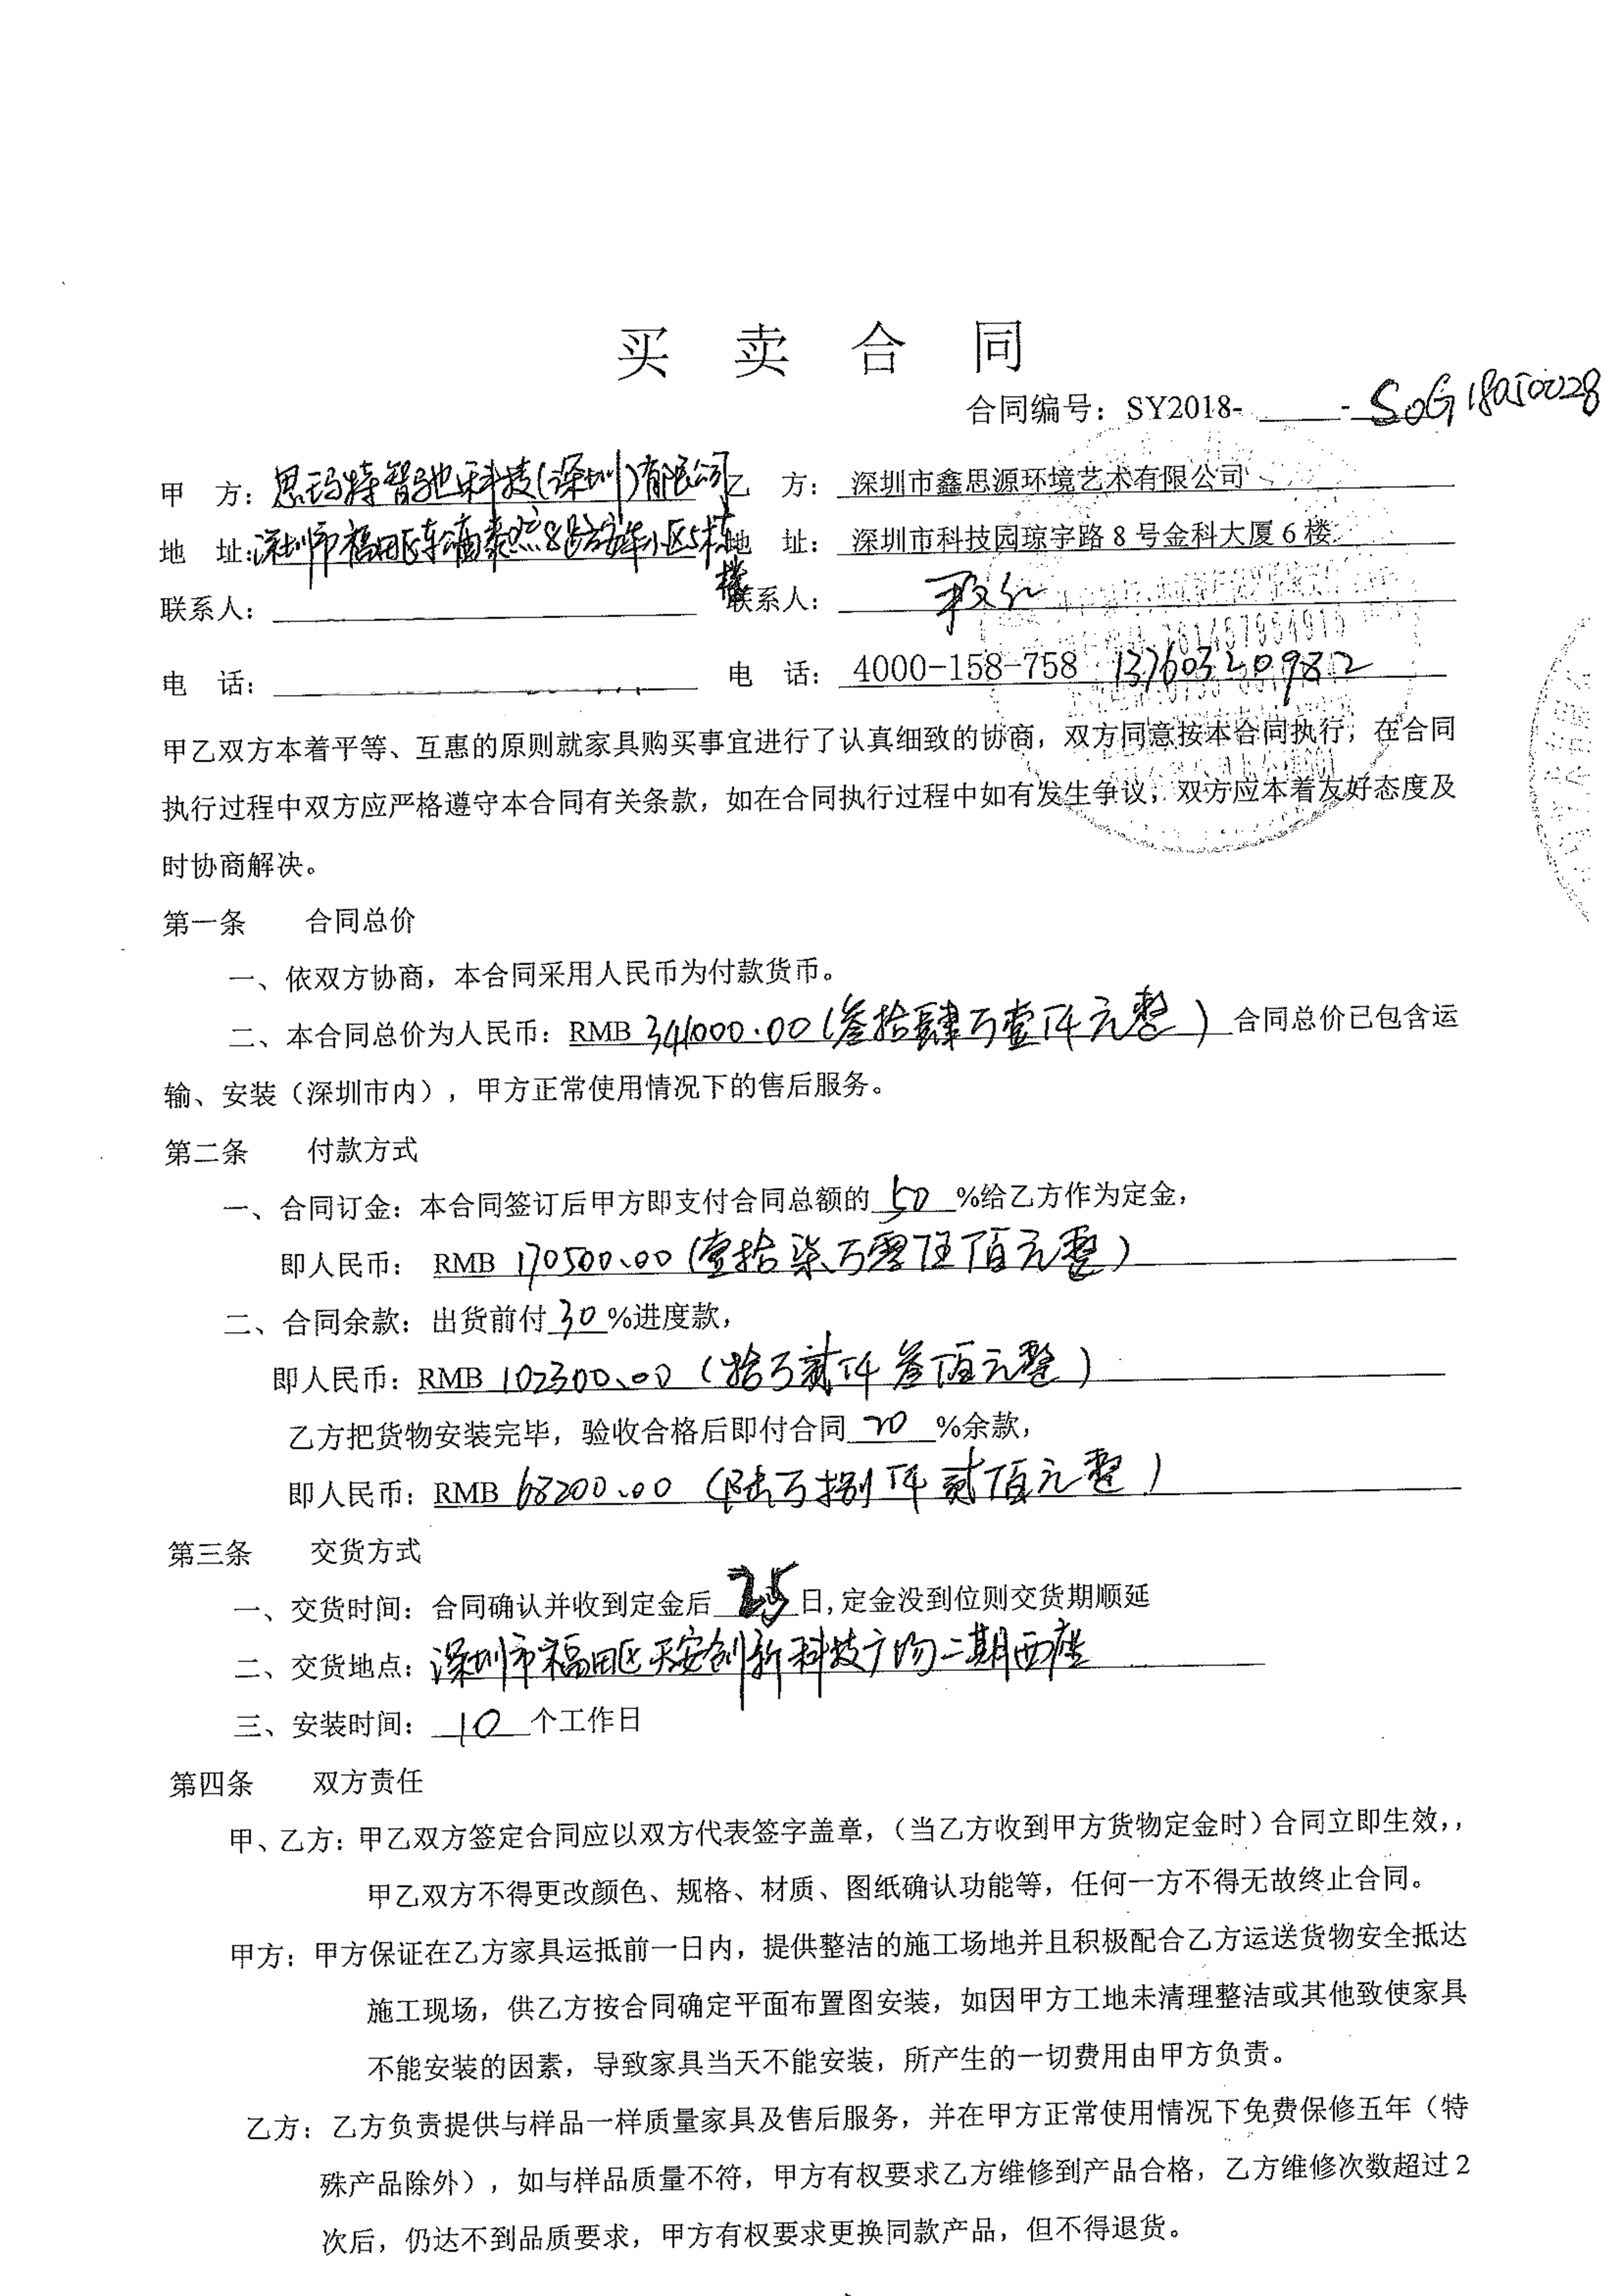 买卖合同
合同编号：SY2018-____-SOG18050028
甲 方：思玛特智驰科技(深圳)有限公司 乙 方：深圳市鑫思源环境艺术有限公司
地 址：深圳市福田区车公庙泰然8路安华小区5栋 楼 地 址：深圳市科技园琼宇路8号金科大厦6楼
联系人： 联系人：
电 话： 电 话：4000-158-758 13760320982
甲乙双方本着平等、互惠的原则就家具购买事宜进行了认真细致的协商，双方同意按本合同执行，在合同
执行过程中双方应严格遵守本合同有关条款，如在合同执行过程中如有发生争议，双方应本着友好态度及
时协商解决。
第一条 合同总价
一、依双方协商，本合同采用人民币为付款货币。
二、本合同总价为人民币：RMB 341000.00(叁拾肆万壹仟元整)合同总价已包含运
输、安装（深圳市内），甲方正常使用情况下的售后服务。
第二条 付款方式
一、合同订金：本合同签订后甲方即支付合同总额的 50 %给乙方作为定金，
即人民币： RMB 170500.00 (壹拾柒万零伍佰元整)
二、合同余款：出货前付30%进度款，
即人民币：RMB 102300.00 (拾万贰仟叁佰元整)
乙方把货物安装完毕，验收合格后即付合同 20 %余款，
即人民币：RMB 68200.00 (陆万捌仟贰佰元整)
第三条 交货方式
一、交货时间：合同确认并收到定金后 25 日,定金没到位则交货期顺延
二、交货地点：深圳市福田区天安创新科技广场二期西座
三、安装时间： 10 个工作日
第四条 双方责任
甲、乙方：甲乙双方签定合同应以双方代表签字盖章，（当乙方收到甲方货物定金时）合同立即生效，，
甲乙双方不得更改颜色、规格、材质、图纸确认功能等，任何一方不得无故终止合同。
甲方：甲方保证在乙方家具运抵前一日内，提供整洁的施工场地并且积极配合乙方运送货物安全抵达
施工现场，供乙方按合同确定平面布置图安装，如因甲方工地未清理整洁或其他致使家具
不能安装的因素，导致家具当天不能安装，所产生的一切费用由甲方负责。
乙方：乙方负责提供与样品一样质量家具及售后服务，并在甲方正常使用情况下免费保修五年（特
殊产品除外），如与样品质量不符，甲方有权要求乙方维修到产品合格，乙方维修次数超过2
次后，仍达不到品质要求，甲方有权要求更换同款产品，但不得退货。